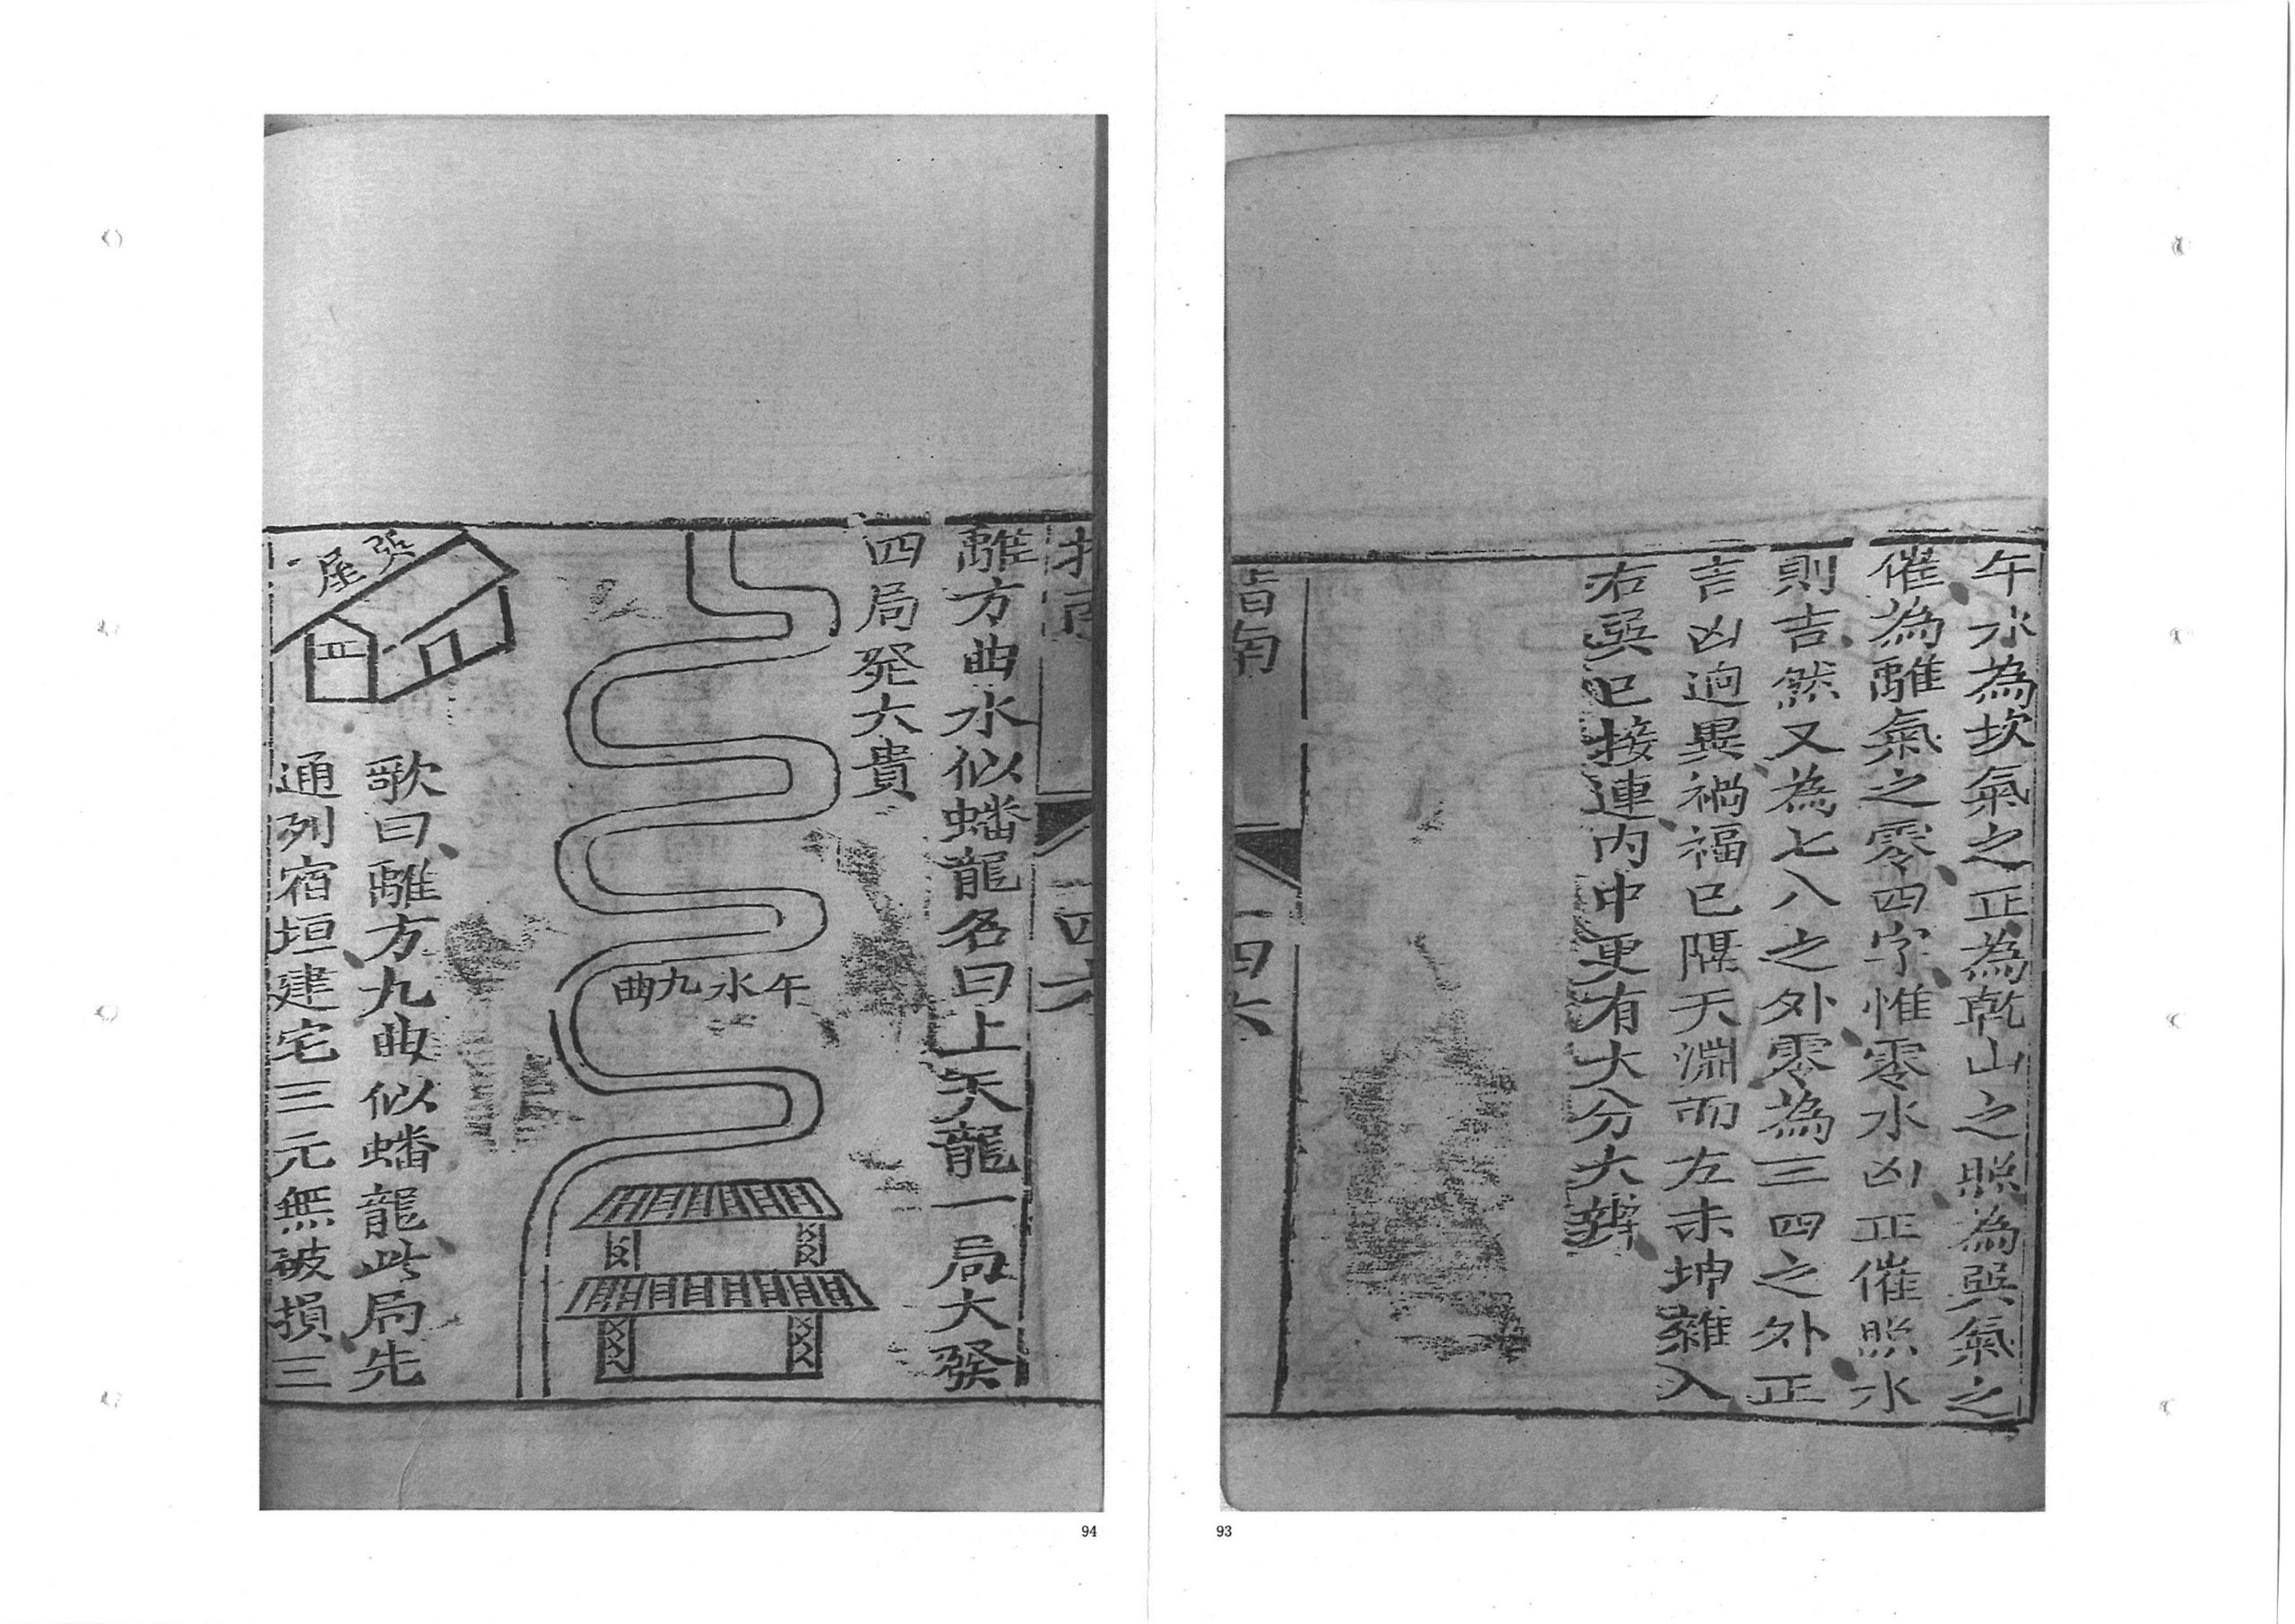 午水為坎氣之正為乾山之照為巽氣之
催為離氣之零四字惟零水凶正催照水
則吉然又為七八之外零為三四之外正
吉凶逈異禍福已隔天淵而左未坤雜入
右巽巳接連內中更有大分大辨
指南
一四六
離方曲水似蟠龍名曰上天龍一局大發
四局発大貴
午水九曲
張屋
歌曰離方九曲似蟠龍此局先
通列宿垣建宅三元無破損三
93
94